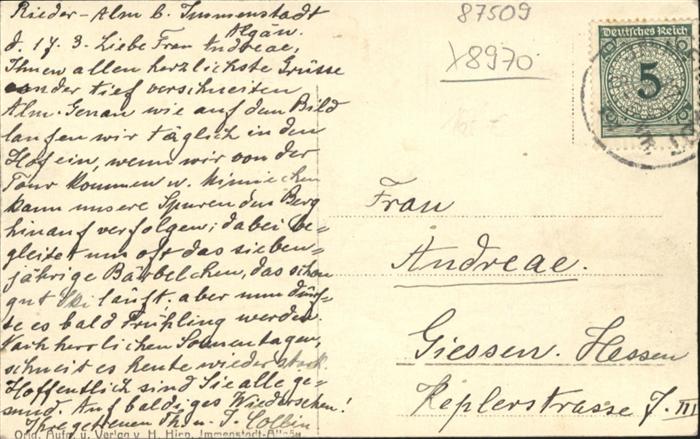 Rieder-Alm b. Immenstadt
Algäu.
d. 17. 3. Liebe Frau Andreae,
Ihnen allen herzlichste Grüsse
von der tief verschneiten
Alm. Genau wie auf dem Bild
laufen wir täglich in den
Hof ein, wenn wir von der
Tour kommen u.
kann unsere Spuren den Berg
hinauf verfolgen; dabei be=
gleitet uns oft das sieben=
jährige Bärbelchen, das schon
gut Ski läuft. aber nun dürf=
te es bald Frühling werden.
Nach herrlichen Sonnentagen,
schneit es heute wieder stark.
Hoffentlich sind Sie alle ge=
sund. Auf baldiges Wiedersehen!
Ihre getreuen
Orig. Aufn. u. Verlag v. H. Hipp, Immenstadt-Allgäu
87509
18970
Deutsches Reich
5
Frau
Andreae.
Giessen. Hessen
Keplerstrasse 7. III